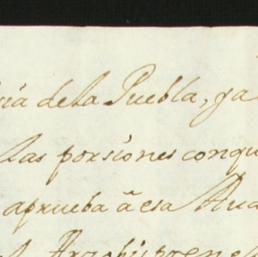 sia de la Puebla, ya
las porsiones conqu
aprueba â esa Aud
l Arzobispo en el